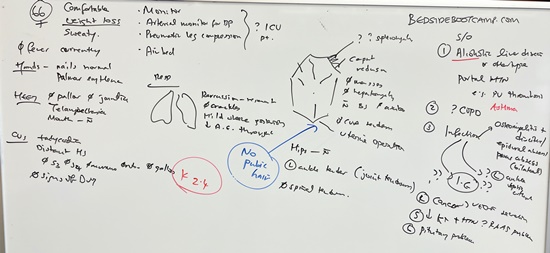 66 ♀
Comfortable
weight loss
Sweaty.
Ø fever currently
Hands - nails normal
Palmar erythema
Ø pallor Ø jaundice
Telangiectasia
Mouth - N
CVS tachycardia
Distant HS
Ø signs of DVT
K 2.4
• Monitor
• Arterial monitor for BP
• Pneumatic leg compression
• Air bed
? ICU
pt.
RESP
Percussion - resonant
Ø crackles
Mild wheeze posteriorly
↓ A.E. throughout
? ? splenomegaly
Caput
medusa
Ø masses
Ø hepatomegaly
Ø CVA tenderness
uterine operation
No
pubic
hair
Hips - N
Ø spinal tenderness
BEDSIDEBOOTCAMP.COM
S/O
① Alcoholic liver disease
or other type
Portal HTN
e.g. PV thrombosis
② ? COPD
Asthma
③ Infection
Osteomyelitis +
discitis /
epidural abscess /
psoas abscess
(bilateral)
I.E
④ Cancer
⑤ ↓ K+ + HTN ? RAAS problem
⑥ Pituitary problem